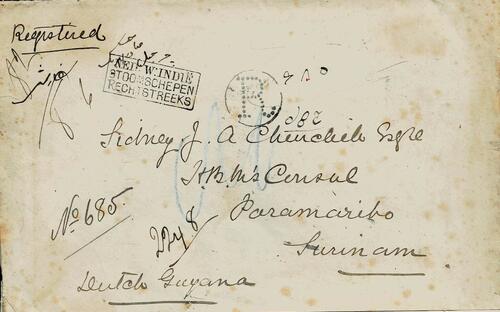 Registered
NED. W. INDIË
STOOMSCHEPEN
RECHTSTREEKS
R
Sidney J. A Churchill Esqre
H.B.M's Consul
Paramaribo
Surinam
No 685.
2248
Dutch Guyana